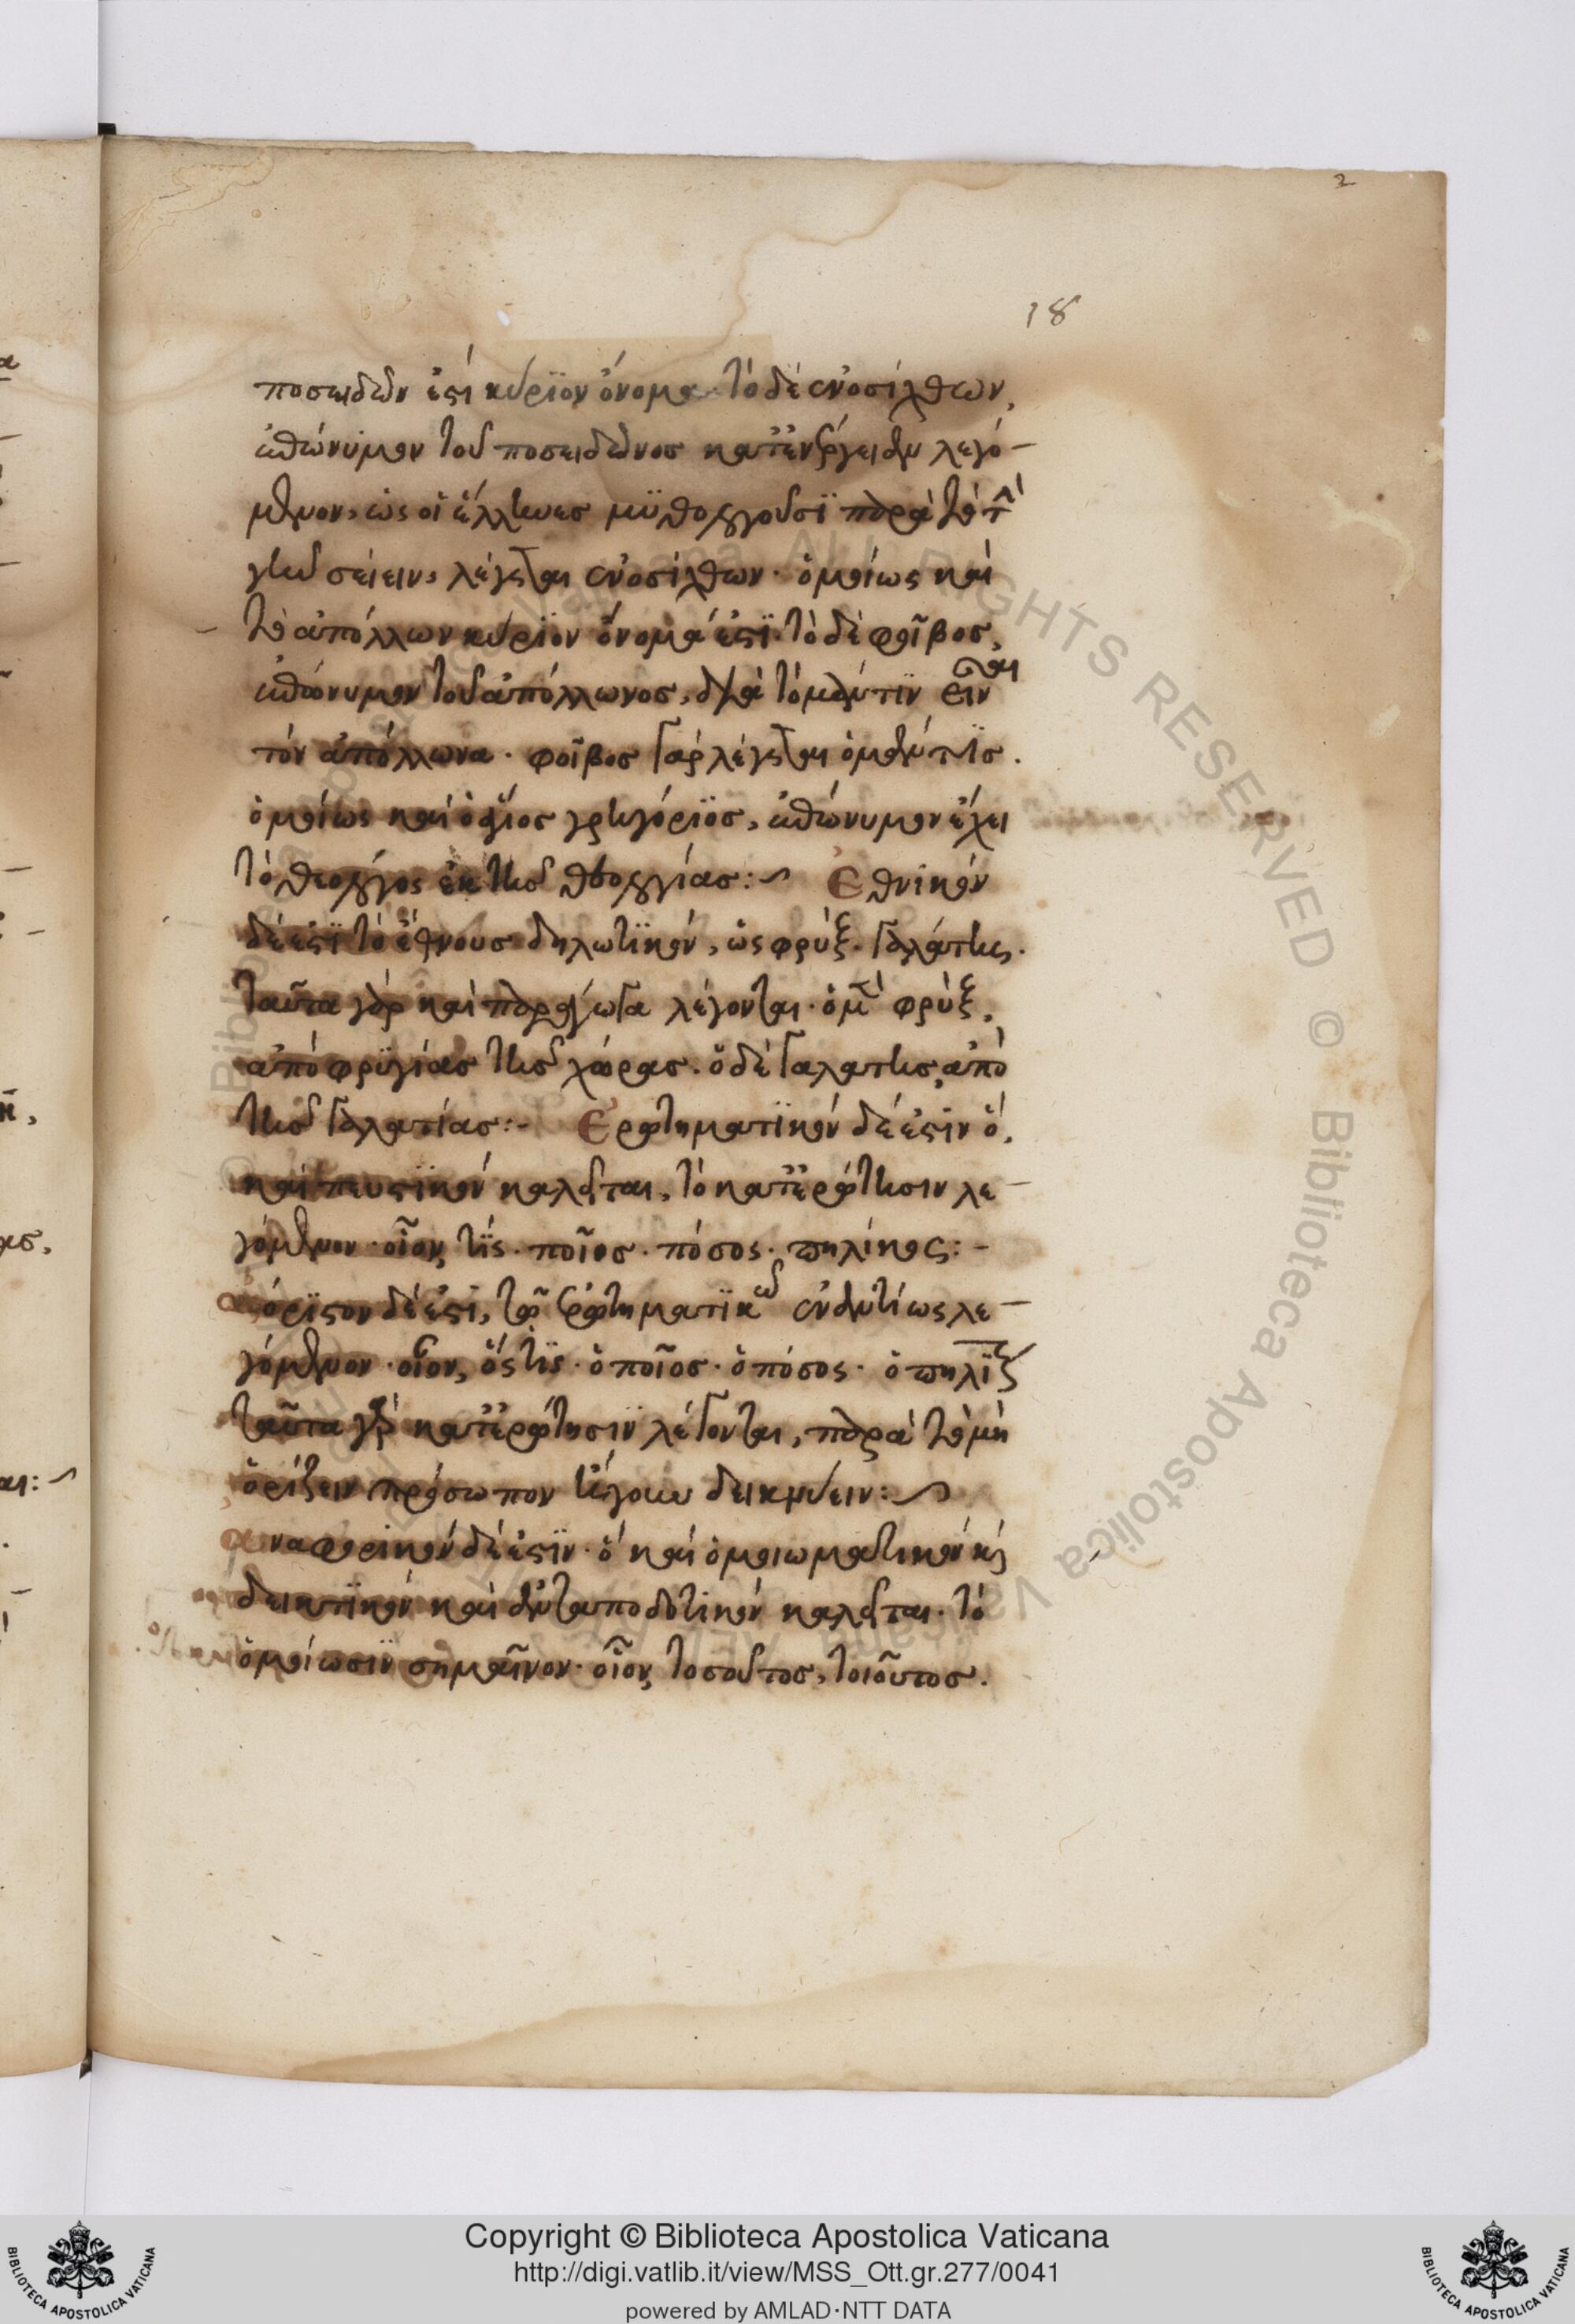 2
18
ποσειδῶν ἐστί κύριον ὄνομα· τὸ δὲ ἐνοσίχθων,
ἐπώνυμον τοῦ ποσειδῶνος κατ' ἐνέργειαν λεγό-
μενον, ὡς οἱ ἕλληνες μυθολογοῦσι παρὰ τὸ τὴν
γῆν σείειν, λέγεται ἐνοσίχθων· ὁμοίως καὶ
τὸ ἀπόλλων κύριον ὄνομά ἐστι· τὸ δὲ φοῖβος,
ἐπώνυμον τοῦ ἀπόλλωνος, διὰ τὸ μάντιν εἶναι
τὸν ἀπόλλωνα· φοῖβος γὰρ λέγεται ὁ μάντις.
ὁμοίως καὶ ὁ ἅγιος γρηγόριος, ἐπώνυμον ἔχει
τὸ θεολόγος ἐκ τῆς θεολογίας:~ Ἐθνικόν
δέ ἐστι τὸ ἔθνους δηλωτικόν, ὡς φρύξ· γαλάτης.
ταῦτα γὰρ καὶ παράγωγα λέγονται· ὁ μὲν φρύξ,
ἀπὸ φρυγίας τῆς χώρας· ὁ δὲ γαλάτης, ἀπὸ
τῆς γαλατίας:- Ἐρωτηματικόν δέ ἐστιν ὅ,
καὶ πευστικόν καλεῖται, τὸ κατ' ἐρώτησιν λε-
γόμενον· οἷον, τίς· ποῖος· πόσος· πηλίκος:-
ἀόριστον δέ ἐστι, τῷ ἐρωτηματικῷ ἐναντίως λε-
γόμενον· οἷον, ὅστις· ὁποῖος· ὁπόσος· ὁπηλίκος
ταῦτα γὰρ κατ' ἐρώτησιν λέγονται, παρὰ τὸ μὴ
ὁρίζειν πρόσωπον δεικνύειν:~
ἀναφορικόν δέ ἐστιν· ὅ καὶ ὁμοιωματικόν καὶ
δεικτικόν καὶ ἀνταποδοτικόν καλεῖται· τὸ
ὁμοίωσιν σημαῖνον· οἷον, τοσοῦτος, τοιοῦτος.
© Biblioteca Apostolica Vaticana ALL RIGHTS RESERVED
Copyright © Biblioteca Apostolica Vaticana
http://digi.vatlib.it/view/MSS_Ott.gr.277/0041
powered by AMLAD·NTT DATA
BIBLIOTECA APOSTOLICA VATICANA
BIBLIOTECA APOSTOLICA VATICANA